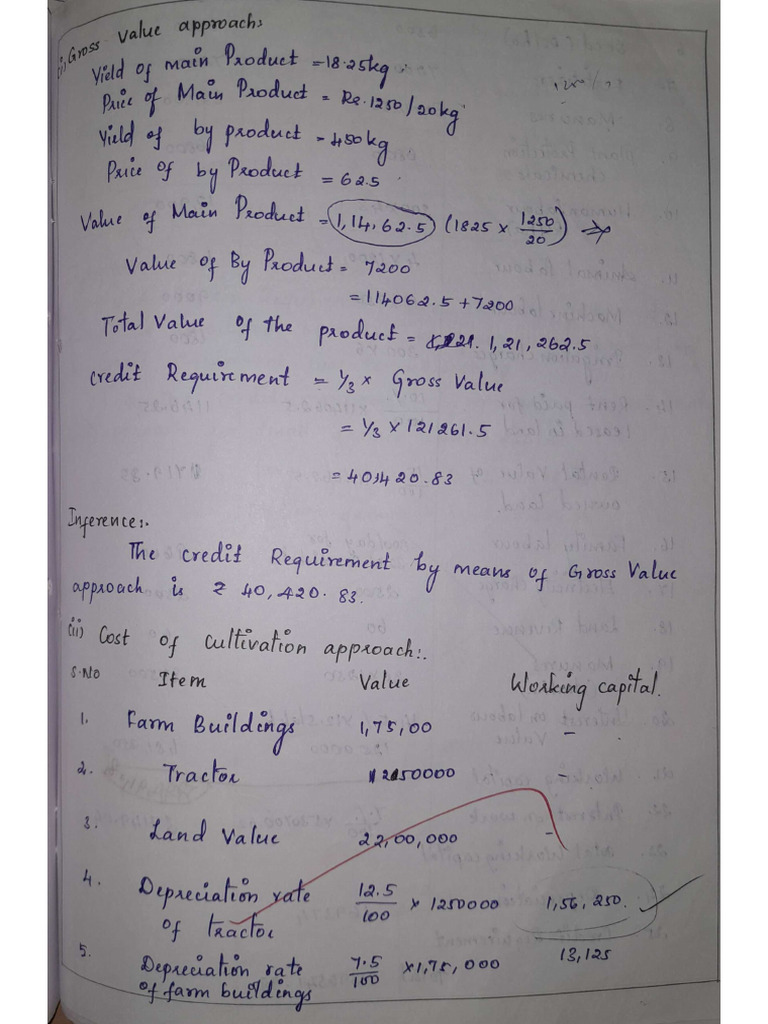 (i) Gross Value approach:
Yield of main Product = 18.25kg.
Price of Main Product = Rs.1250/20kg
Yield of by product = 450kg
Price of by Product = 62.5
Value of Main Product = 1,14,62.5 (1825 × 1250/20) ⇒
Value of By Product = 7200
= 114062.5 + 7200
Total Value of the product = 1,21,262.5
Credit Requirement = 1/3 × Gross Value
= 1/3 × 121261.5
= 401420.83
Inference:-
The credit Requirement by means of Gross Value
approach is ₹ 40,420.83.
(ii) Cost of cultivation approach:-
S.No Item Value Working capital.
1. Farm Buildings 1,75,00 -
2. Tractor 12150000 -
3. Land Value 22,00,000 -
4. Depreciation rate of tractor 12.5/100 × 1250000 1,56,250.
5. Depreciation rate of farm buildings 7.5/100 × 1,75,000 13,125